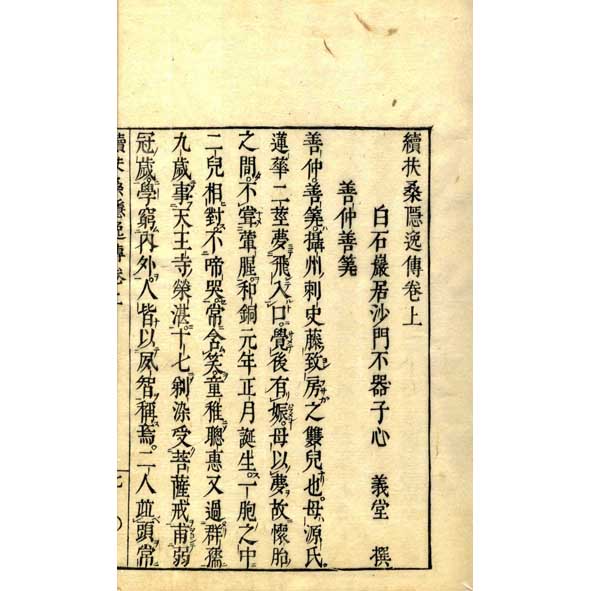 續扶桑隱逸傳卷上
白石巖居沙門不器子心 義堂 撰
善仲善筭
善仲善筭攝州刺史藤致房之雙兒也母源氏
蓮華二莖夢飛入口覺後有娠母以夢故懷胎
之間不甞葷腥和銅元年正月誕生一胞之中
二兒相對不啼哭常含笑童稚聰惠又過群孺
九歲事天王寺榮湛十七剃染受菩薩戒甫弱
冠歲學窮內外人皆以夙智稱焉二人竝頭常
續扶桑隱逸傳卷上